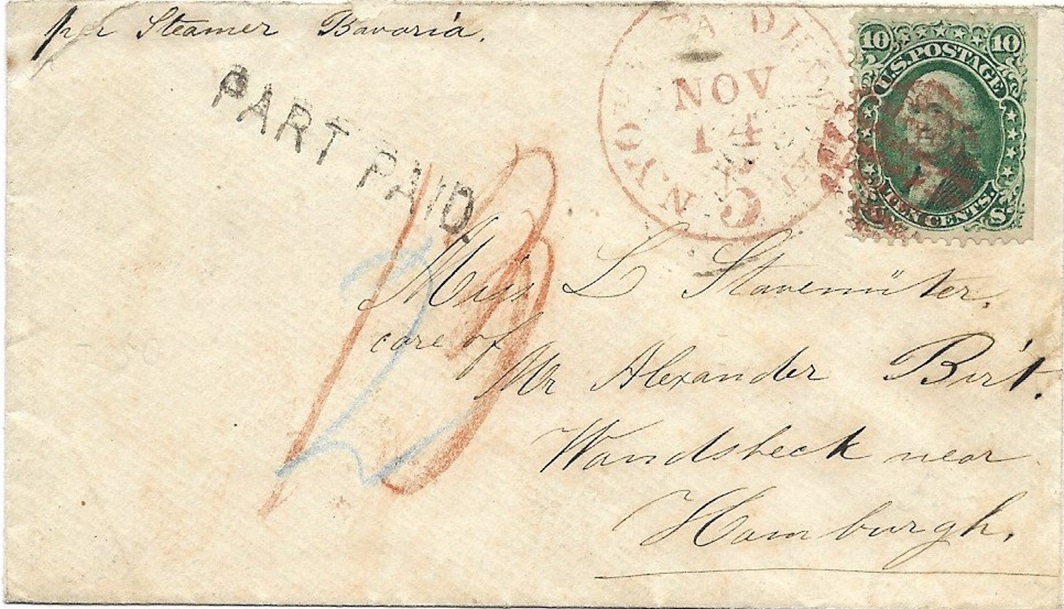 per Steamer Bavaria.
PART PAID.
N. YORK PAID
NOV
14
5
10 10
U.S. POSTAGE
TEN CENTS.
U S
Miss L Stavemüter.
care of
Mr Alexander Birt.
Wandsbeck near
Hamburgh.